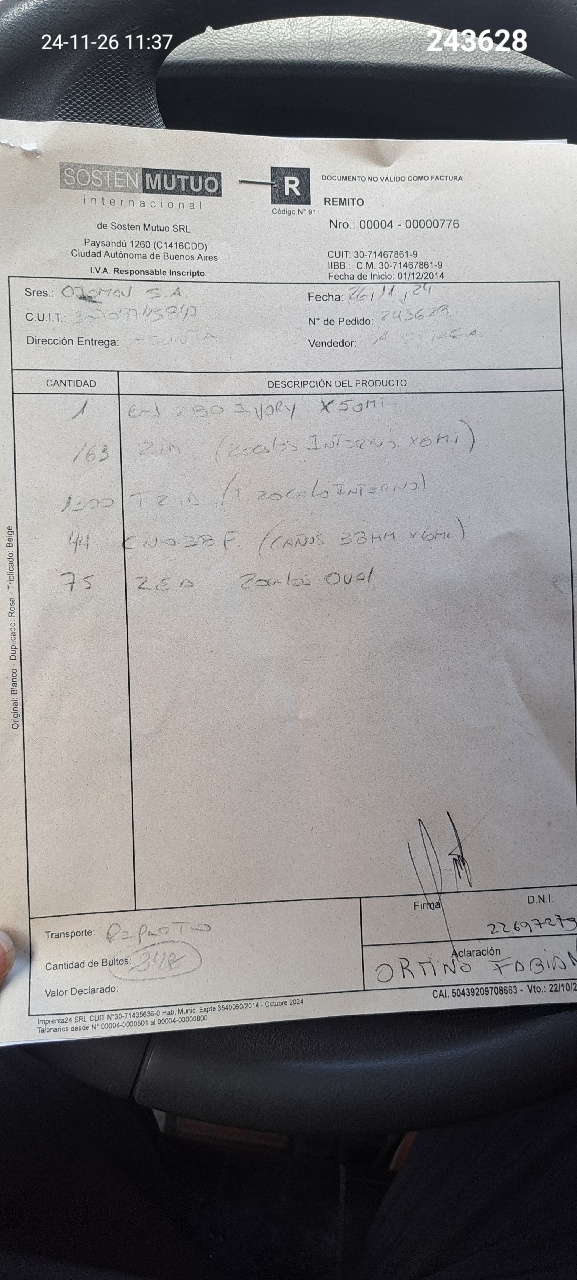 24-11-26 11:37
243628
SOSTEN MUTUO
internacional
de Sosten Mutuo SRL
Paysandú 1260 (C1416CDD)
Ciudad Autónoma de Buenos Aires
I.V.A. Responsable Inscripto
R
Código N° 91
DOCUMENTO NO VÁLIDO COMO FACTURA
REMITO
Nro.: 00004 - 00000776
CUIT: 30-71467861-9
IIBB.: C.M. 30-71467861-9
Fecha de Inicio: 01/12/2014
Sres.: S.A.
Fecha: 26/11/24
C.U.I.T.:
N° de Pedido: 243628
Dirección Entrega:
Vendedor:
CANTIDAD DESCRIPCIÓN DEL PRODUCTO
1 280 IVORY X50Mt
163 ZIA (Zocalos Interno x6Mt)
TZIA (T. ZOCALO INTERNO)
44 CNO38F (CAÑOS 38MM x6Mt)
75 ZEA Zocalos Oval
Original: Blanco - Duplicado: Rosa - Triplicado: Beige
Transporte: REPARTO
Cantidad de Bultos: 348
Valor Declarado:
Firma
D.N.I.
22697279
Aclaración
ORTINO FABIAN
CAI. 50439209708663 - Vto.: 22/10/2
Imprenta24 SRL CUIT N°30-71435636-0 Hab. Munic. Expte 3540060/2014 - Octubre 2024
Talonarios desde N° 00004-00000501 al 00004-00000800